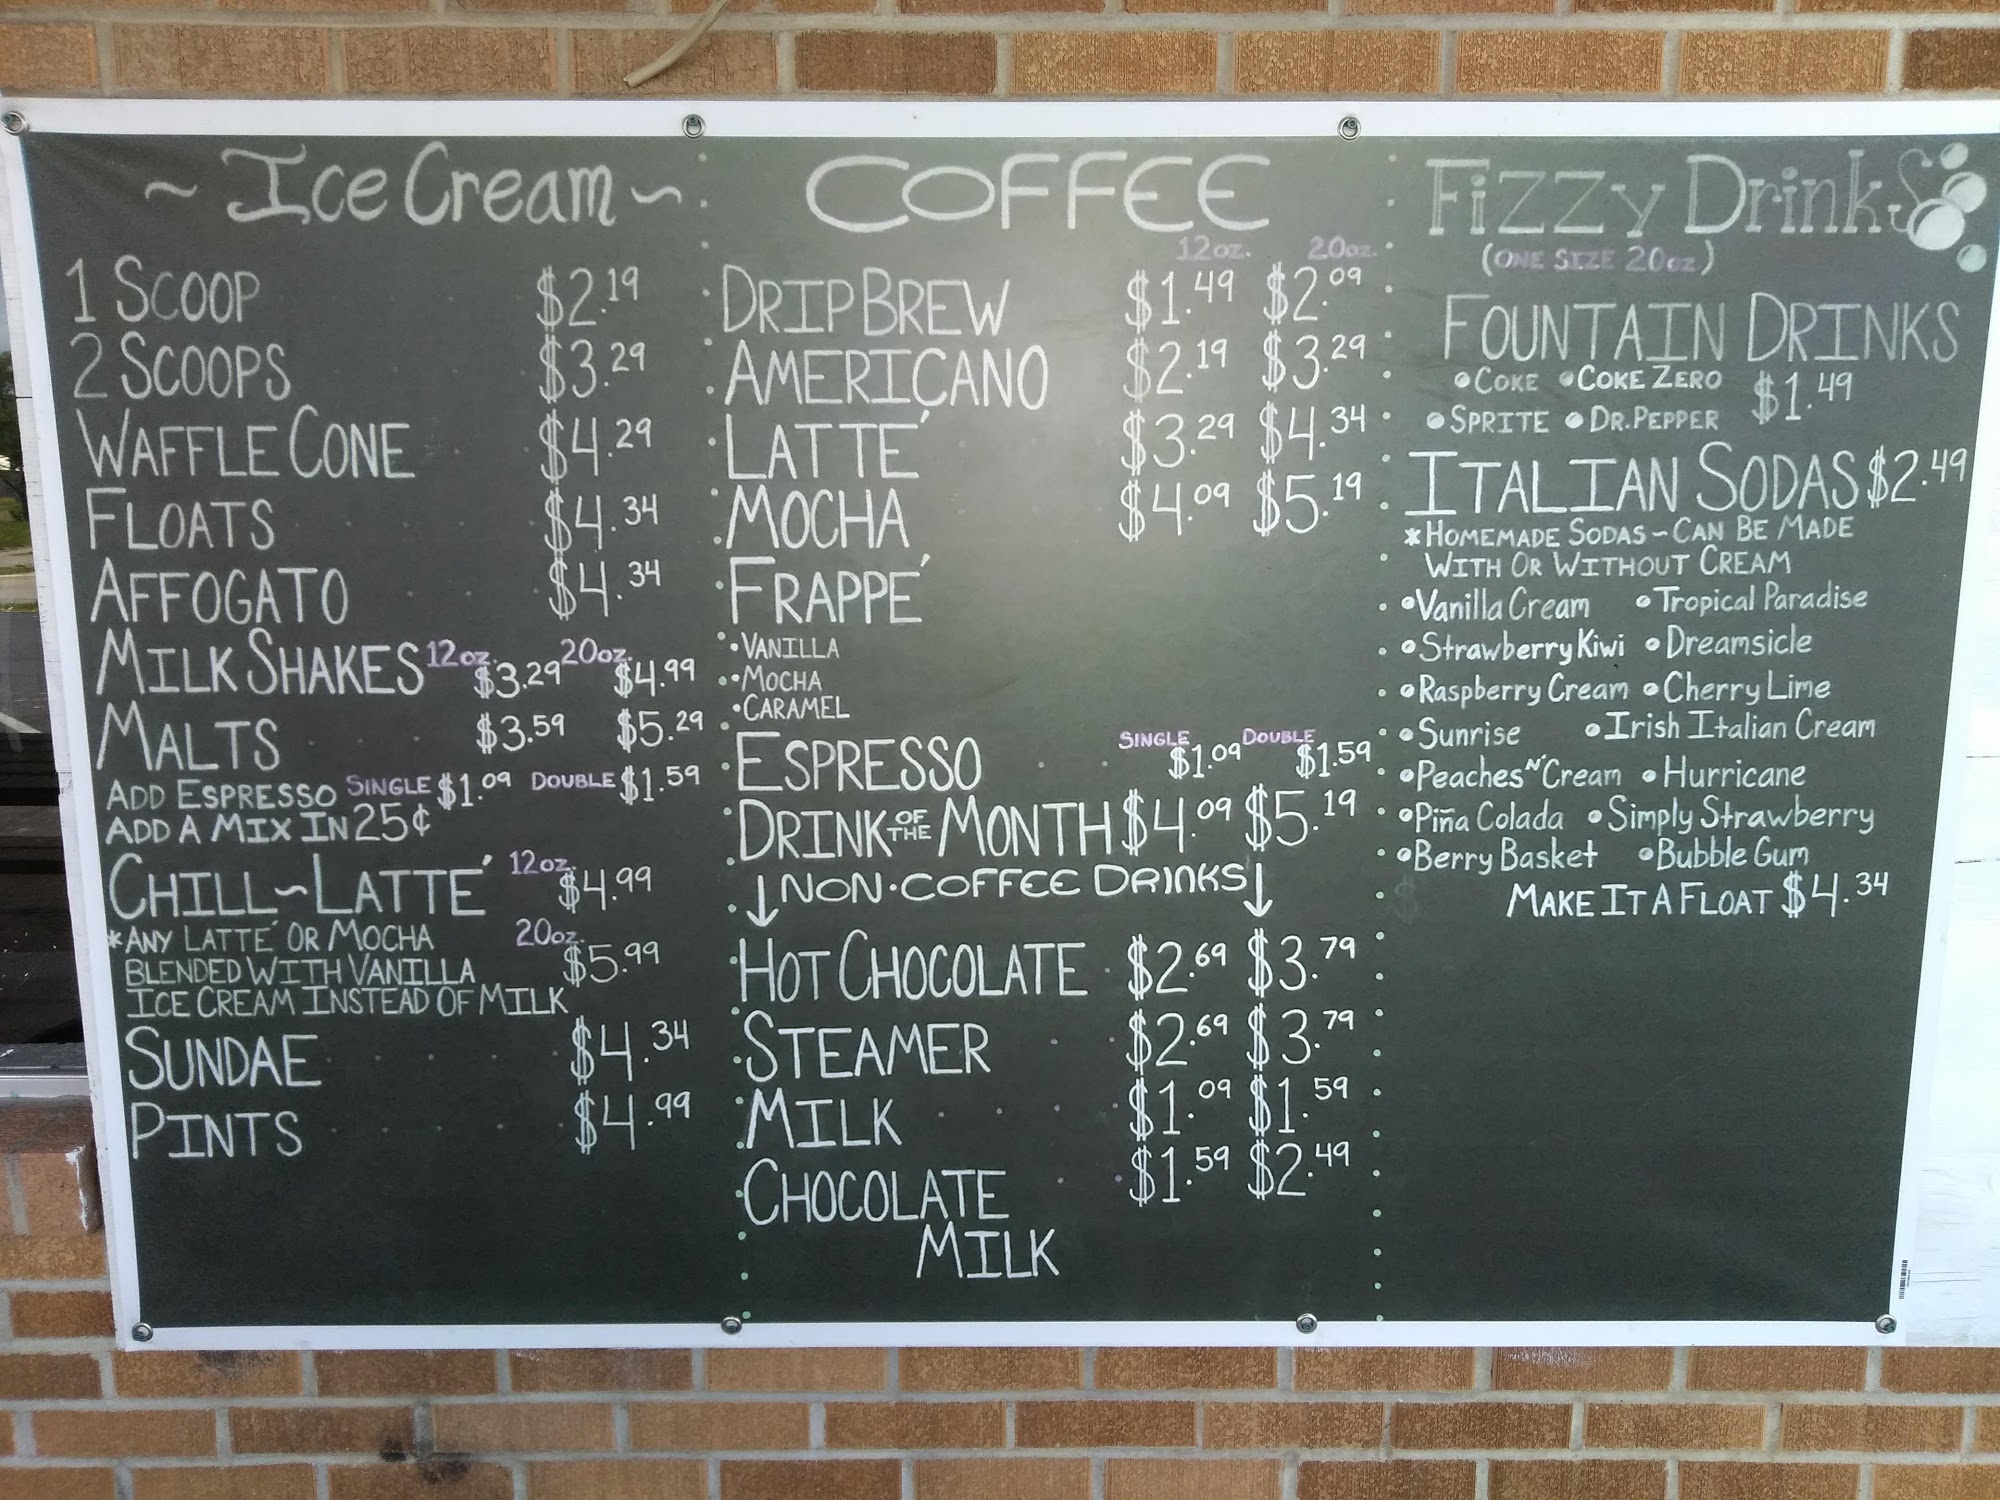 ~ Ice Cream ~
1 SCOOP $2.19
2 SCOOPS $3.29
WAFFLE CONE $4.29
FLOATS $4.34
AFFOGATO $4.34
MILK SHAKES 12oz. $3.29 20oz. $4.99
MALTS $3.59 $5.29
ADD ESPRESSO SINGLE $1.09 DOUBLE $1.59
ADD A MIX IN 25¢
CHILL~LATTÉ 12oz. $4.99
*ANY LATTÉ OR MOCHA 20oz. $5.99
BLENDED WITH VANILLA
ICE CREAM INSTEAD OF MILK
SUNDAE $4.34
PINTS $4.99
COFFEE
12oz. 20oz.
DRIP BREW $1.49 $2.09
AMERICANO $2.19 $3.29
LATTÉ $3.29 $4.34
MOCHA $4.09 $5.19
FRAPPÉ
•VANILLA
•MOCHA
•CARAMEL
ESPRESSO SINGLE $1.09 DOUBLE $1.59
DRINK OF THE MONTH $4.09 $5.19
↓NON•COFFEE DRINKS↓
HOT CHOCOLATE $2.69 $3.79
STEAMER $2.69 $3.79
MILK $1.09 $1.59
CHOCOLATE $1.59 $2.49
MILK
Fizzy Drinks
(ONE SIZE 20oz)
FOUNTAIN DRINKS
•COKE •COKE ZERO $1.49
•SPRITE •DR. PEPPER
ITALIAN SODAS $2.49
*HOMEMADE SODAS~CAN BE MADE
WITH OR WITHOUT CREAM
•Vanilla Cream •Tropical Paradise
•Strawberry Kiwi •Dreamsicle
•Raspberry Cream •Cherry Lime
•Sunrise •Irish Italian Cream
•Peaches N' Cream •Hurricane
•Piña Colada •Simply Strawberry
•Berry Basket •Bubble Gum
MAKE IT A FLOAT $4.34